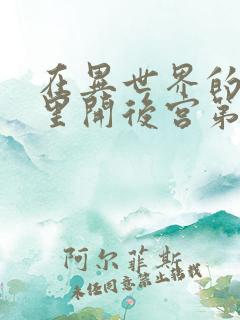 在異世界的
里開後宮第
阿尔菲斯
未经同意禁止转载